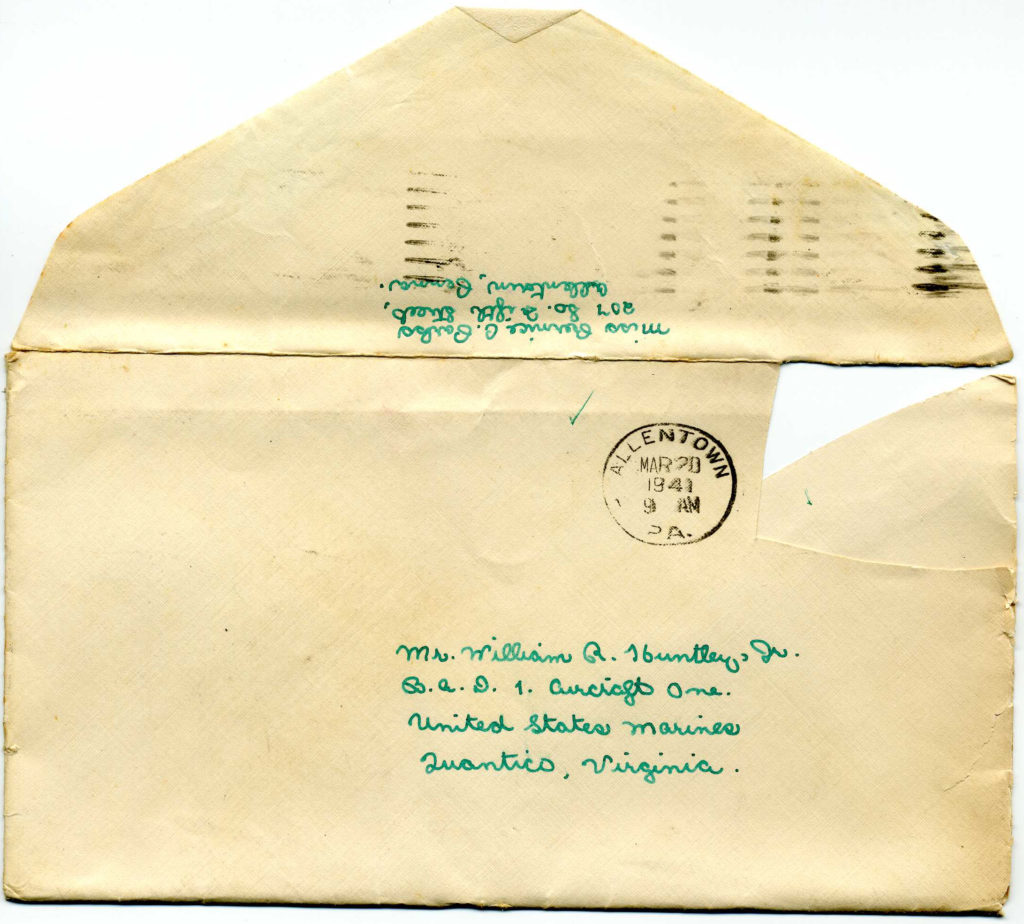 Miss Bernice C.
207 So. Fifth Street,
Allentown, Penna.
ALLENTOWN
MAR 20
1941
9 AM
PA.
Mr. William R. Huntley, Jr.
B.A.D. 1. Aircraft One.
United States Marines
Quantico, Virginia.